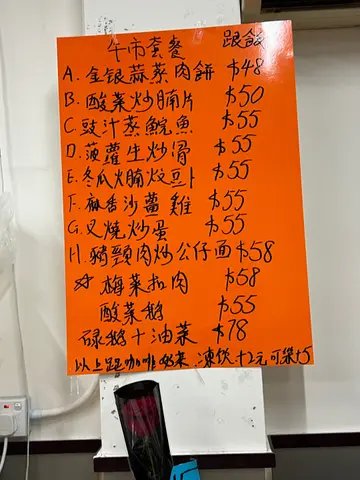 午市套餐 跟飯
A. 金银蒜蒸肉餅 $48
B. 酸菜炒腩片 $50
C. 豉汁蒸鯇魚 $55
D. 菠蘿生炒骨 $55
E. 冬瓜火腩炆豆卜 $55
F. 麻香沙薑雞 $55
G. 叉燒炒蛋 $55
H. 豬頸肉炒公仔面 $58
梅菜扣肉 $58
酸菜鵝 $55
碌鹅十油菜 $78
以上跟咖啡奶茶.凍飲+2元可樂+5